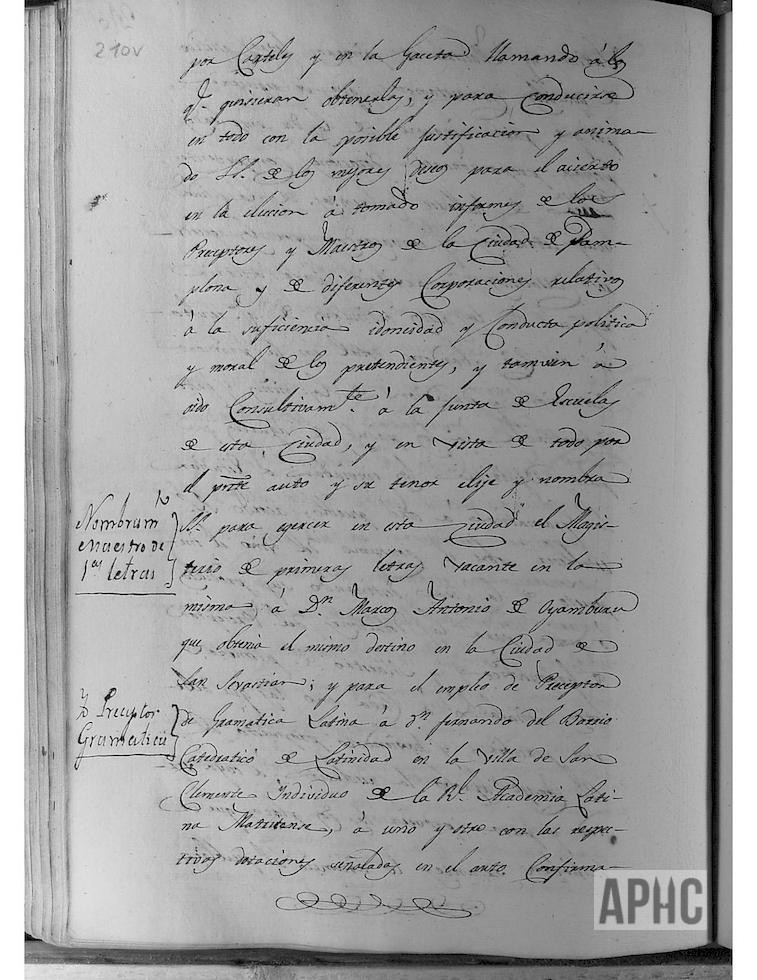 210v
por Carteles y en la Gaceta llamando á los
q.e quisieran obtenerlas, y para conducirse
en todo con la posible justificacion y anima-
do S.S. de los mejores deseos para el acierto
en la eleccion á tomado informes de los
Preceptores y Maestros de la Ciudad de Pam-
plona y de diferentes Corporaciones relativos
á la suficiencia idoneidad y Conducta politica
y moral de los pretendientes, y tamvien á
oido Consultivam.te á la Junta de Escuelas
de esta Ciudad, y en vista de todo por
el pnte auto y su tenor elije y nombra
Nombram.to
maestro de
1.as letras
S.S. para egercer en esta Ciudad el Magis-
terio de primeras letras vacante en la
misma á D.n Marcos Antonio de Oyamburu
que obtenia el mismo destino en la Ciudad de
San Sevastian; y para el empleo de Preceptor
Y D Preceptor
Gramatica
de Gramatica Latina á d.n fernando del Barrio
Catedratico de Latinidad en la villa de San
Clemente Individuo de la R.l Academia Lati-
na Matritense, á uno y otro con las respec-
tivas dotaciones señaladas en el auto Confirma-
APHC